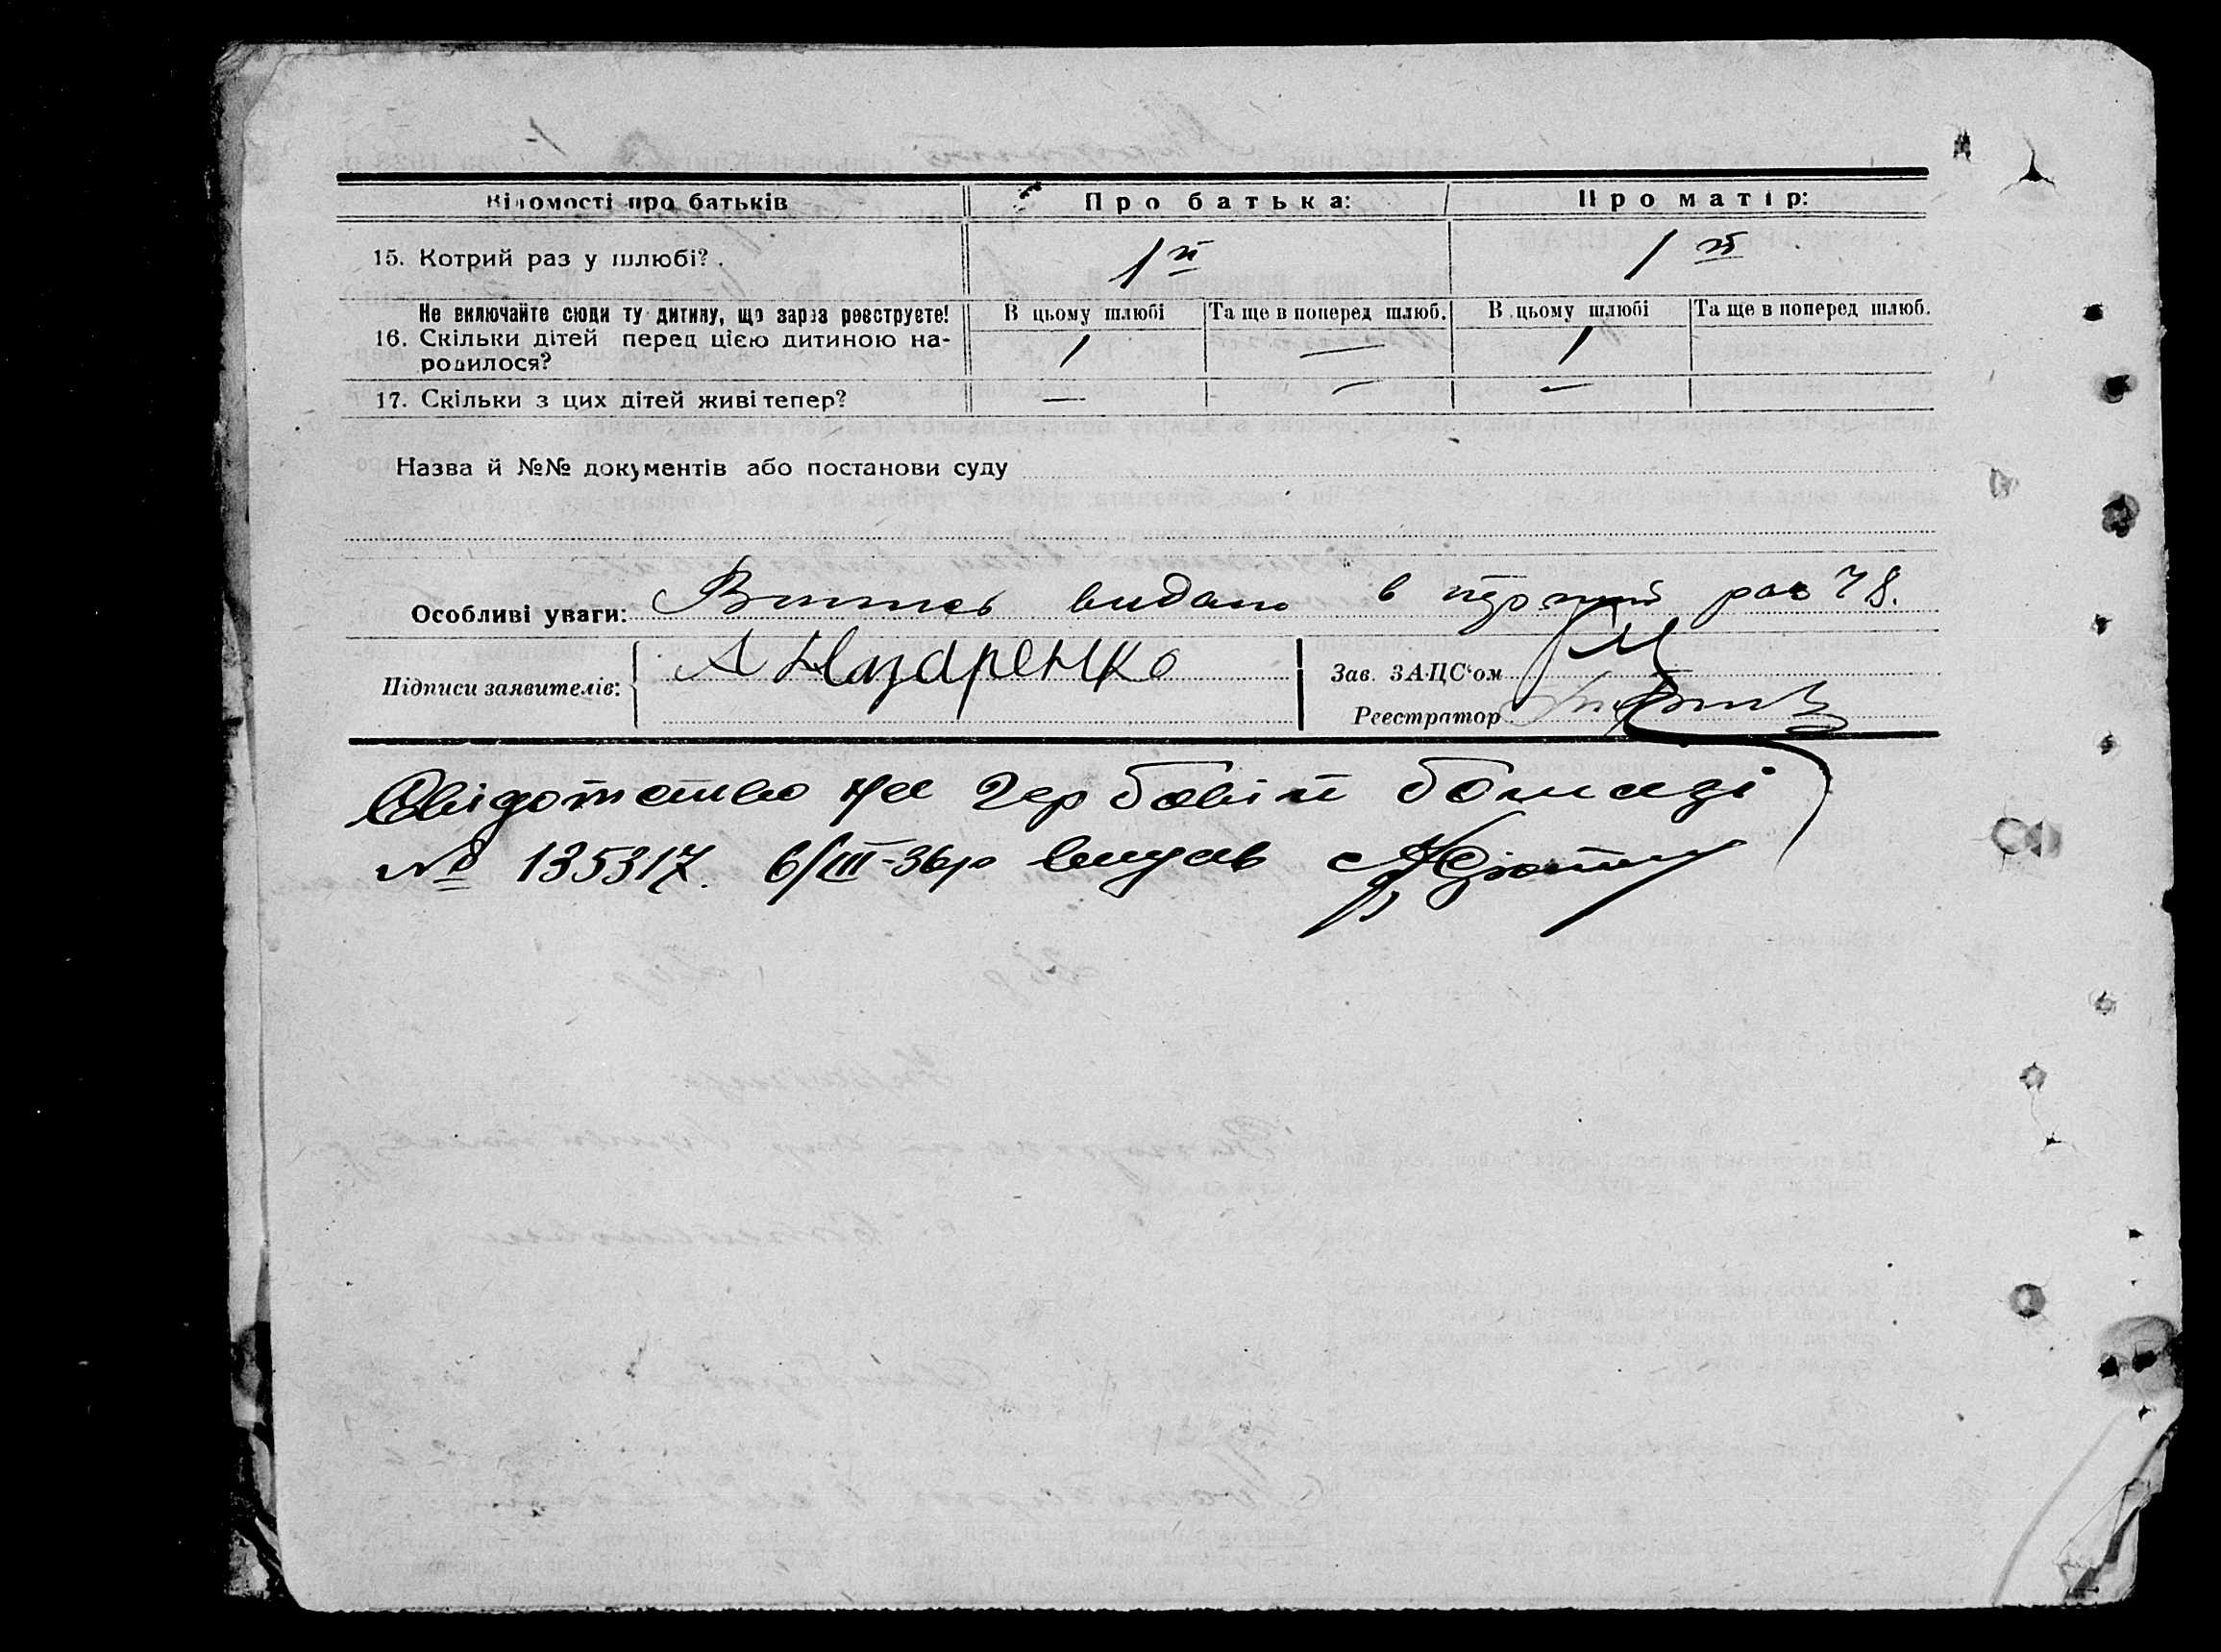 Відомості про батьків Про батька: Про матір:
15. Котрий раз у шлюбі? 1й 1й
Не включайте сюди ту дитину, що зараз реєструєте! В цьому шлюбі Та ще в поперед шлюб. В цьому шлюбі Та ще в поперед шлюб.
16. Скільки дітей перед цією дитиною на- 1 — 1
родилося?
17. Скільки з цих дітей живі тепер? — — —
Назва й №№ документів або постанови суду
Особливі уваги: Витяг видано в перший раз 78.
Підписи заявителів: А Назаренко
Зав. ЗАЦС'ом
Реєстратор
Свідотство на гербовій бомазі
№ 135317. 6/III-36р видав